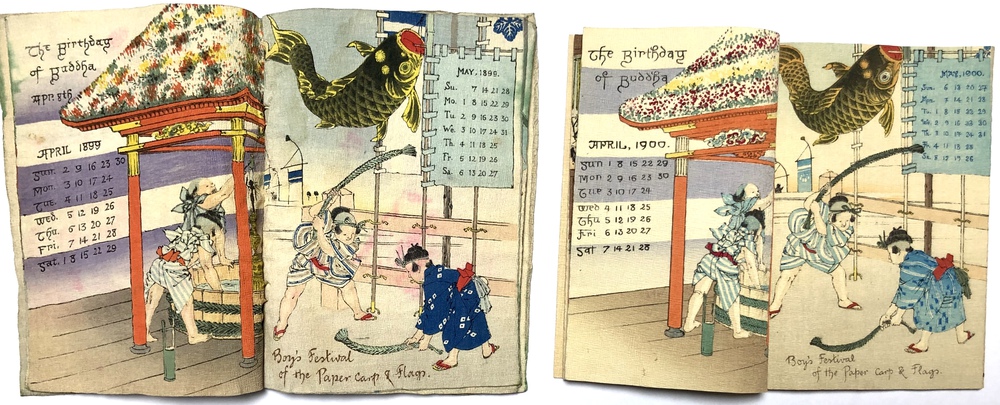 The Birthday
of Buddha
Apr. 8th
APRIL 1899
Sun. 2 9 16 23 30
Mon. 3 10 17 24
Tue. 4 11 18 25
Wed. 5 12 19 26
Thu. 6 13 20 27
Fri. 7 14 21 28
Sat. 1 8 15 22 29
MAY, 1899.
Su. 7 14 21 28
Mo. 1 8 15 22 29
Tu 2 9 16 23 30
We. 3 10 17 24 31
Th. 4 11 18 25
Fr. 5 12 19 26
Sa. 6 13 20 27
Boy's Festival
of the Paper Carp & Flags.
The Birthday
of Buddha
APRIL, 1900.
Sun 1 8 15 22 29
Mon 2 9 16 23 30
Tue 3 10 17 24
Wed 4 11 18 25
Thu 5 12 19 26
Fri 6 13 20 27
Sat 7 14 21 28
MAY, 1900.
6 13 20 27
Boy's Festival
of the Paper Carp & Flags.